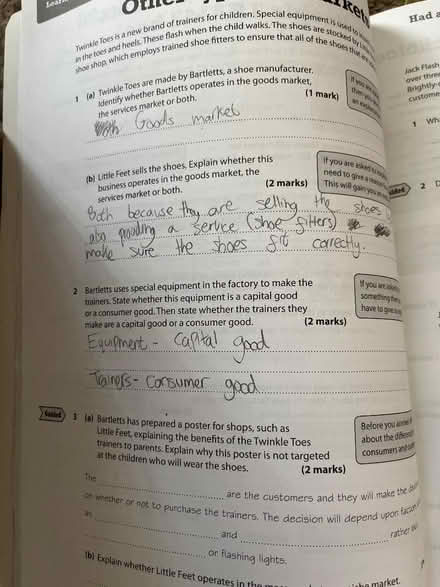 Learn
Othe
rkets
Twinkle Toes is a new brand of trainers for children. Special equipment is used to
in the toes and heels. These flash when the child walks. The shoes are stocked by
shoe shop, which employs trained shoe fitters to ensure that all of the shoes that are
1 (a) Twinkle Toes are made by Bartletts, a shoe manufacturer.
Identify whether Bartletts operates in the goods market,
the services market or both. (1 mark)
Goods market
If you are
(b) Little Feet sells the shoes. Explain whether this
business operates in the goods market, the
services market or both. (2 marks)
If you are asked to
need to give a
This will gain you
Both because they are selling the shoes
also providing a service (shoe fitters)
make sure the shoes fit correctly.
2 Bartletts uses special equipment in the factory to make the
trainers. State whether this equipment is a capital good
or a consumer good. Then state whether the trainers they
make are a capital good or a consumer good. (2 marks)
If you are
something
have to give
Equipment - capital good
Trainers - consumer good
Guided
3 (a) Bartletts has prepared a poster for shops, such as
Little Feet, explaining the benefits of the Twinkle Toes
trainers to parents. Explain why this poster is not targeted
at the children who will wear the shoes. (2 marks)
Before you
about the
consumers and
The
are the customers and they will make the
on whether or not to purchase the trainers. The decision will depend upon
as
and
rather
or flashing lights.
(b) Explain whether Little Feet operates in the
market.
Had a
Jack Flash
over three
Brightly-
custome
1 Wh
2